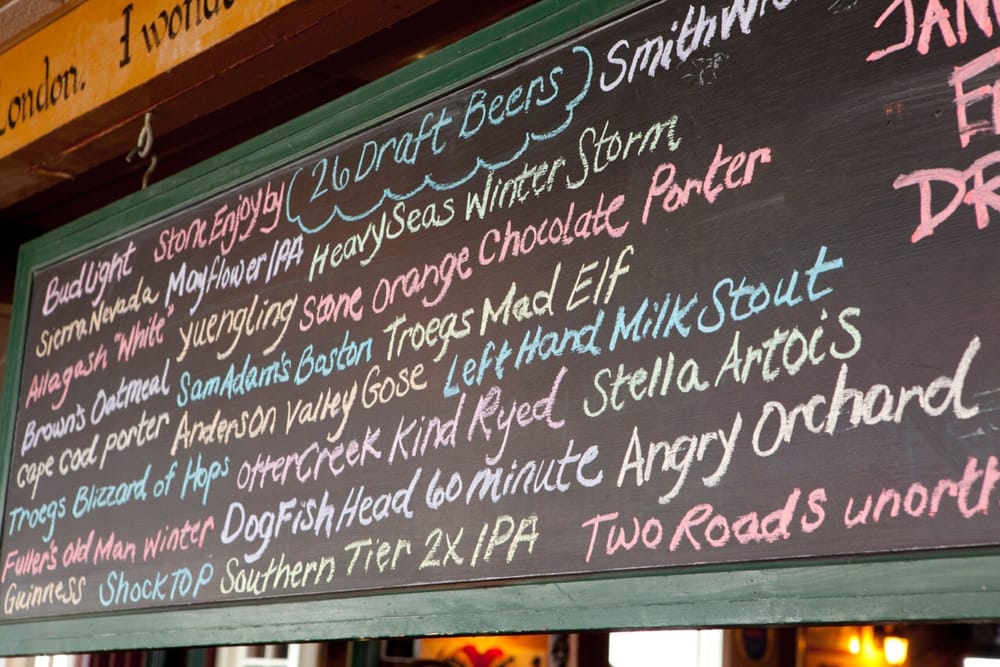 London. I won
26 Draft Beers
Bud Light
Sierra Nevada
Allagash "White"
Brown's Oatmeal
Cape Cod porter
Troegs Blizzard of Hops
Fuller's Old Man Winter
Guinness
Stone Enjoy by
Mayflower IPA
Yuengling
Sam Adam's Boston
Anderson Valley Gose
Otter Creek Kind Ryed
DogFish Head 60 minute
Shock TOP
Southern Tier 2X IPA
SmithW
Heavy Seas Winter Storm
Stone Orange Chocolate Porter
Troegs Mad Elf
Left Hand Milk Stout
Stella Artois
Angry Orchard
Two Roads unorth
JAN
DR